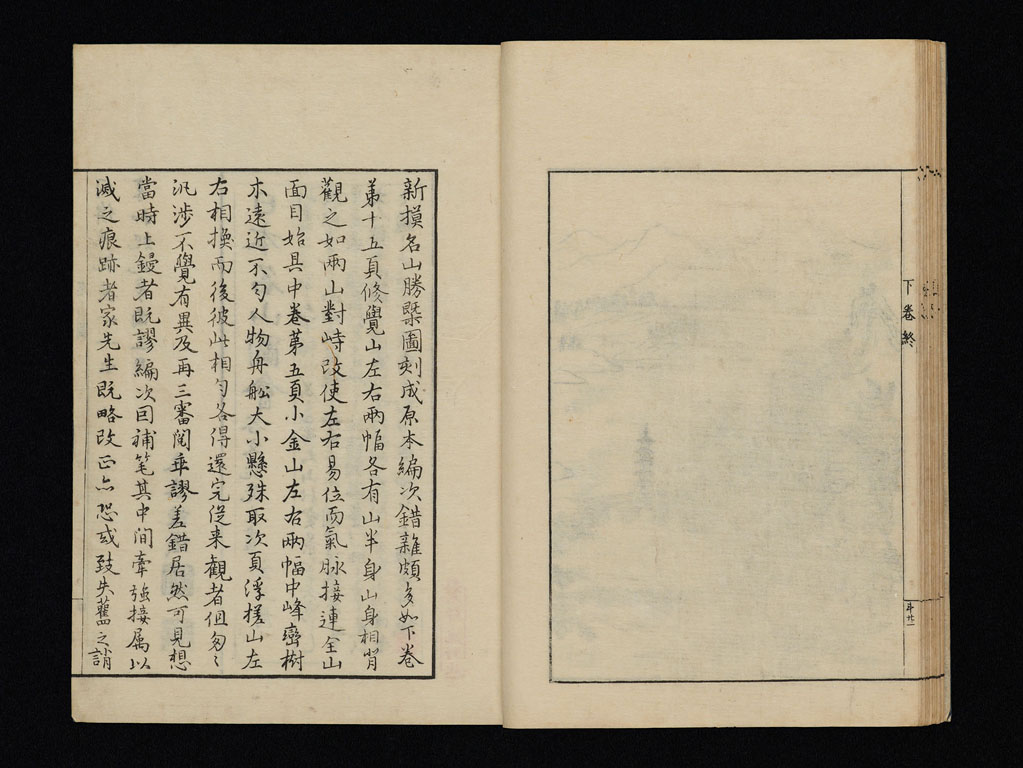 下卷終
新摸名山勝槩圖刻成原本編次錯雜頗多如下卷
第十五頁修覺山左右兩幅各有山半身山身相背
觀之如兩山對峙改使左右易位而氣脉接連全山
面目始具中卷第五頁小金山左右兩幅中峰巒樹
木遠近不勻人物舟舩大小懸殊取次頁浮搓山左
右相換而後彼此相勻各得還完從来觀者但匆〻
汎涉不覺有異及再三審閱乖謬差錯居然可見想
當時上鏝者既謬編次囙補笔其中间牽強接属以
滅之痕跡者家先生既略改正亦恐或致失舊之誚